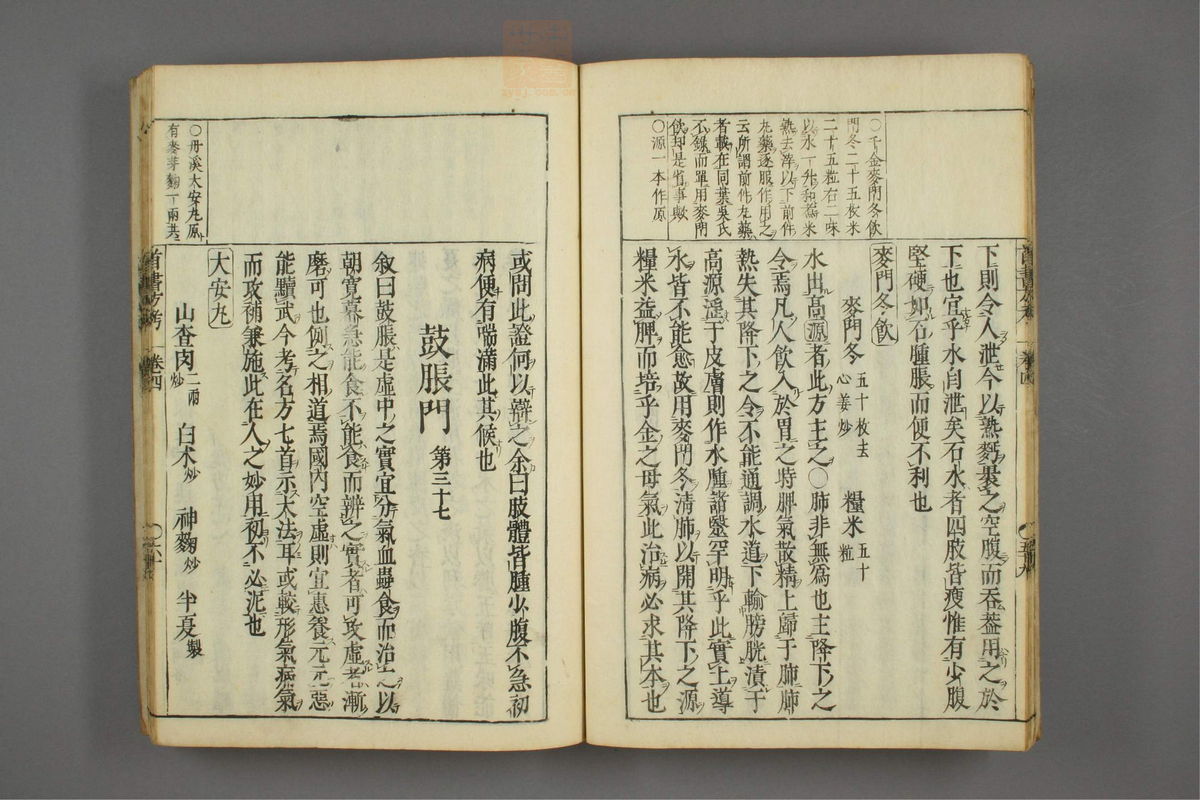 ○千金麥門冬飲
門冬二十五枚米
二十五粒右二味
以水一升和煮米
熟去滓以下前件
丸藥逐服作用之
云所謂前件丸藥
者載在同葉吳氏
不錄而單用麥門
飲却是省事歟
○源一本作原
下則令人泄今以熟麪裹之空腹而吞蓋用之於
下也宜乎水自泄矣石水者四肢皆瘦惟有少腹
堅硬如石腫脹而便不利也
麥門冬飲
麥門冬 五十枚去心姜炒 糧米 五十粒
水出高源者此方主之○肺非無爲也主降下之
令焉凡人飲入於胃之時脾氣散精上歸于肺肺
熱失其降下之令不能通調水道下輸膀胱漬于
高源淫于皮膚則作水腫諸醫罕明乎此實土導
水皆不能愈故用麥門冬清肺以開其降下之源
糧米益脾而培乎金之母氣此治病必求其本也
首書方考 卷四
○丹溪大安丸原
有麥芽麴一兩共
或問此證何以辯之余曰肢體皆腫少腹不急初
病便有喘滿此其候也
鼓脹門 第三十七
敘曰鼓脹是虛中之實宜分氣血蟲食而治之以
朝寬暮急能食不能食而辨之實者可攻虛者漸
磨可也例之相道焉國內空虛則宜惠養元元惡
能黷武今考名方七首示大法耳或較形氣病氣
而攻補兼施此在人之妙用初不必泥也
大安丸
山查肉 二兩炒 白朮 炒 神麴 炒 半夏 製
首書方考 卷四